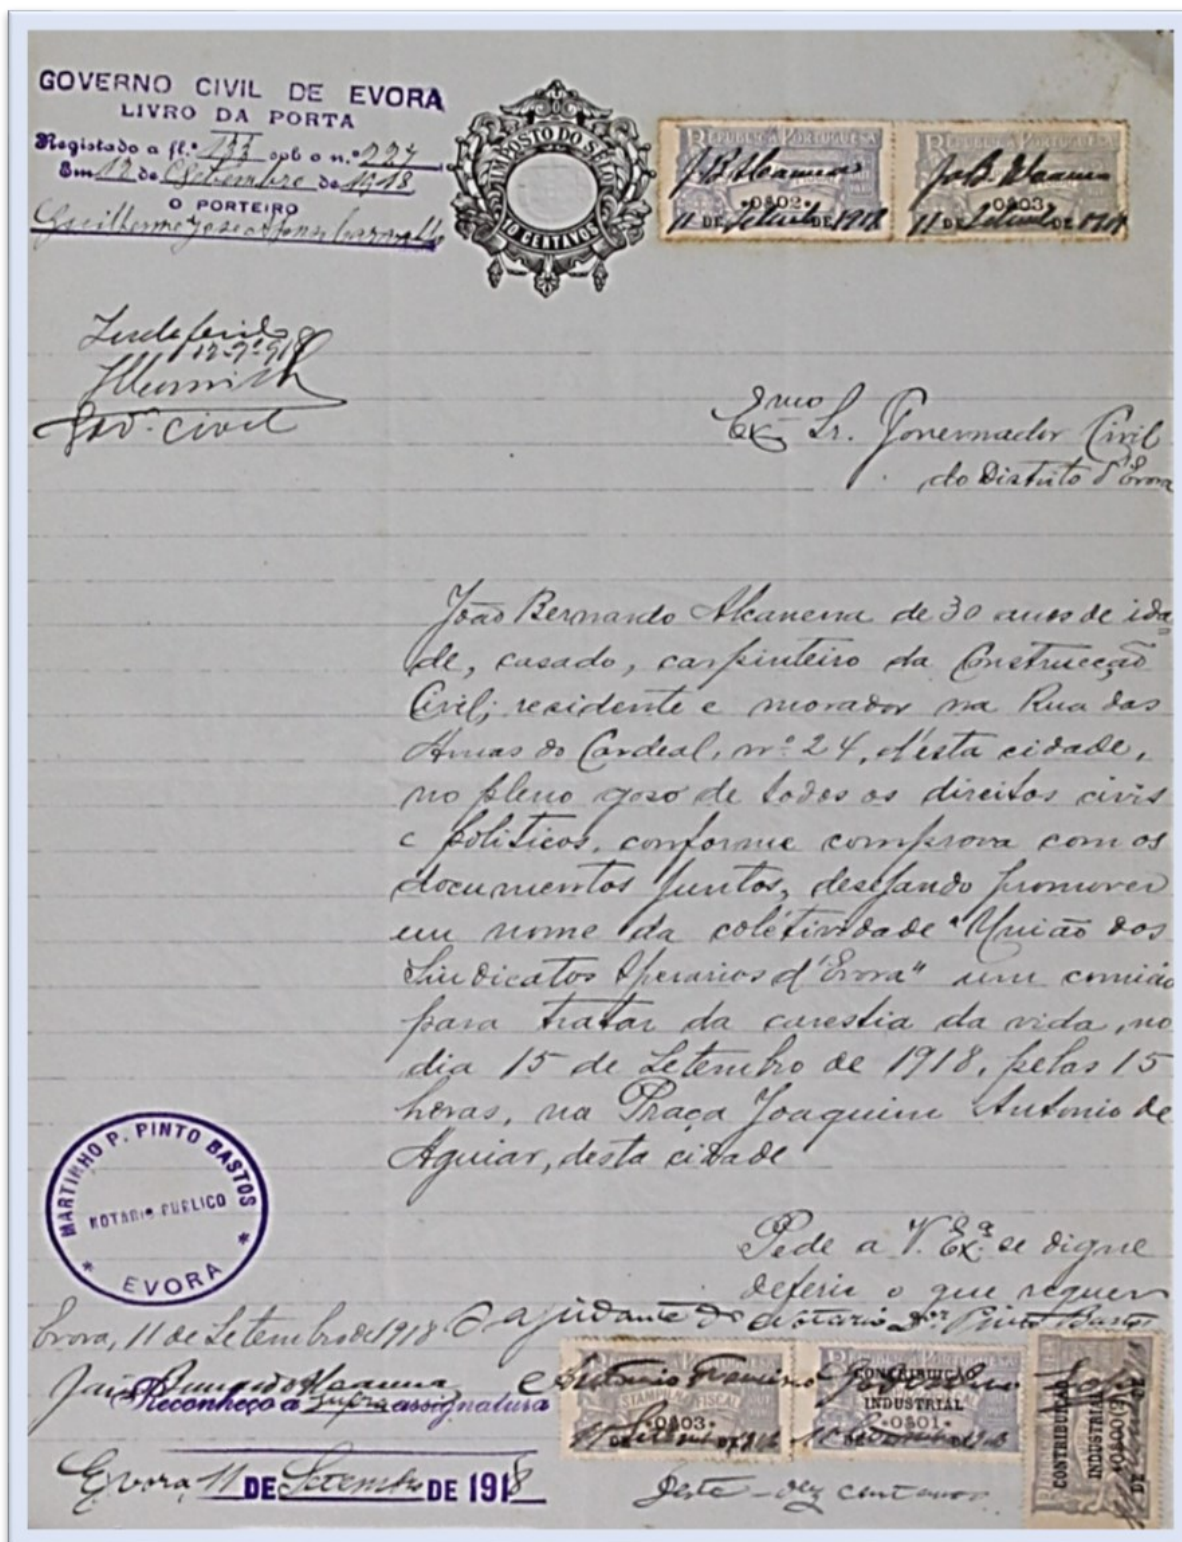 GOVERNO CIVIL DE EVORA
LIVRO DA PORTA
Registado a fl.ª 133 sob o n.º 227
Em 12 de Setembro de 1918
O PORTEIRO
Guilherme José Afonso Carvalho
IMPOSTO DO SELO
10 CENTAVOS
REPUBLICA PORTUGUESA
J. B. Alcanena
•0$02•
11 DE Setembro DE 1918
REPUBLICA PORTUGUESA
João B. Alcanena
•0$03•
11 DE Setembro DE 1918
Indeferido
12-9º-918
Gov.or civil
Exmo Sr. Governador Civil
do Distrito d'Evora
João Bernardo Alcanena de 30 anos de ida-
de, casado, carpinteiro da Construcção
Civil; residente e morador na Rua das
Amas do Cardeal, nº 24, d'esta cidade,
no pleno goso de todos os direitos civis
e politicos, conforme comprova com os
documentos juntos, desejando promover
em nome da coletividade "União dos
Sindicatos Operarios d'Evora" um comicio
para tratar da carestia da vida, no
dia 15 de Setembro de 1918, pelas 15
horas, na Praça Joaquim Antonio de
Aguiar, desta cidade
Pede a V. Ex.ª se digne
deferir o que requer
MARTINHO P. PINTO BASTOS
NOTARIO PUBLICO
* EVORA *
Evora, 11 de Setembro de 1918
O ajudante do notario Dr. Pinto Bastos
João Bernardo Alcanena
Reconheço a supra assignatura
Evora 11 DE Setembro DE 1918
REPUBLICA PORTUGUESA
Antonio
ESTAMPILHA FISCAL
•0$03•
11 DE Setembro DE 1918
REPUBLICA PORTUGUESA
CONTRIBUIÇÃO
INDUSTRIAL
•0$01•
CONTRIBUIÇÃO
INDUSTRIAL
Desta — dez centavos